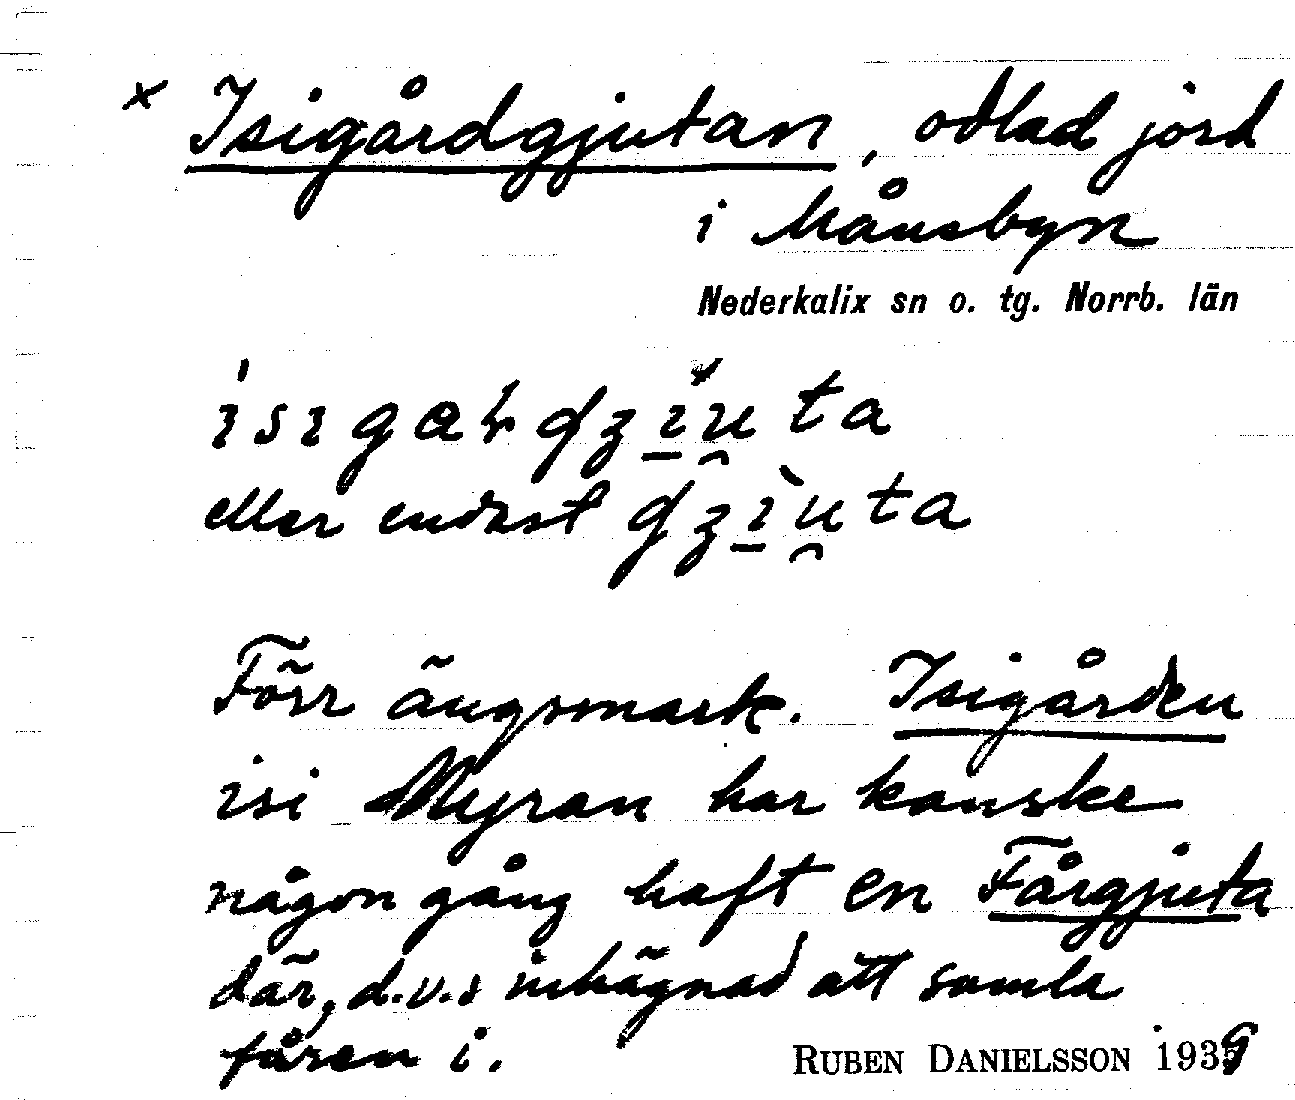 × Isigårdgjutan, odlad jord
i Månsbyn
Nederkalix sn o. tg. Norrb. län
eller endast
Förr ängsmark. Isigården
isi Myran har kanske
någon gång haft en Fårgjuta
där, d.v.s inhägnad att samla
fåren i.
RUBEN DANIELSSON 1939